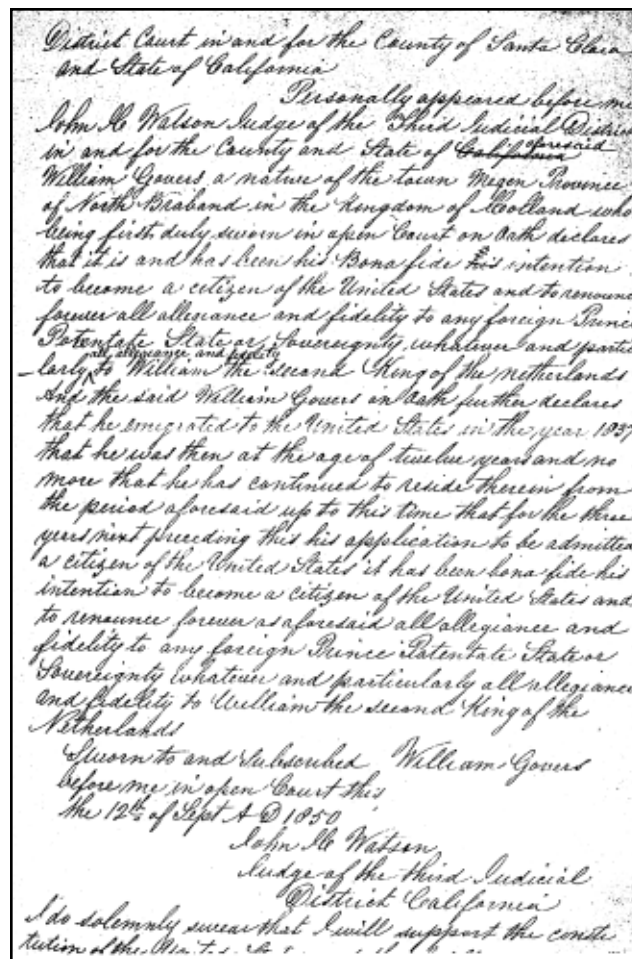 District Court in and for the County of Santa Clara
and State of California
Personally appeared before me
John H Watson Judge of the Third Judicial District
in and for the County and State of California aforesaid
William Govers a native of the town Megen Province
of North Braband in the Kingdom of Holland who
being first duly sworn in open Court on Oath declares
that it is and has been his Bona fide his intention
to become a citizen of the United States and to renounce
forever all allegiance and fidelity to any foreign Prince
Potentate State or Sovereignty whatever and particu
all allegiance and fidelity
-larly to William the second King of the netherlands
And the said William Govers on Oath further declares
that he emigrated to the United States in the year 1837
that he was then at the age of twelve years and no
more that he has continued to reside therein from
the period aforesaid up to this time that for the three
years next preceding this his application to be admitted
a citizen of the United States it has been bona fide his
intention to become a citizen of the United States and
to renounce forever as aforesaid all allegiance and
fidelity to any foreign Prince Potentate State or
Sovereignty whatever and particularly all allegiance
and fidelity to William the second King of the
Netherlands
Sworn to and Subscribed William Govers
before me in open Court this
the 12th of Sept A D 1850
John H Watson
Judge of the third Judicial
District California
I do solemnly swear that I will support the consti
tution of the